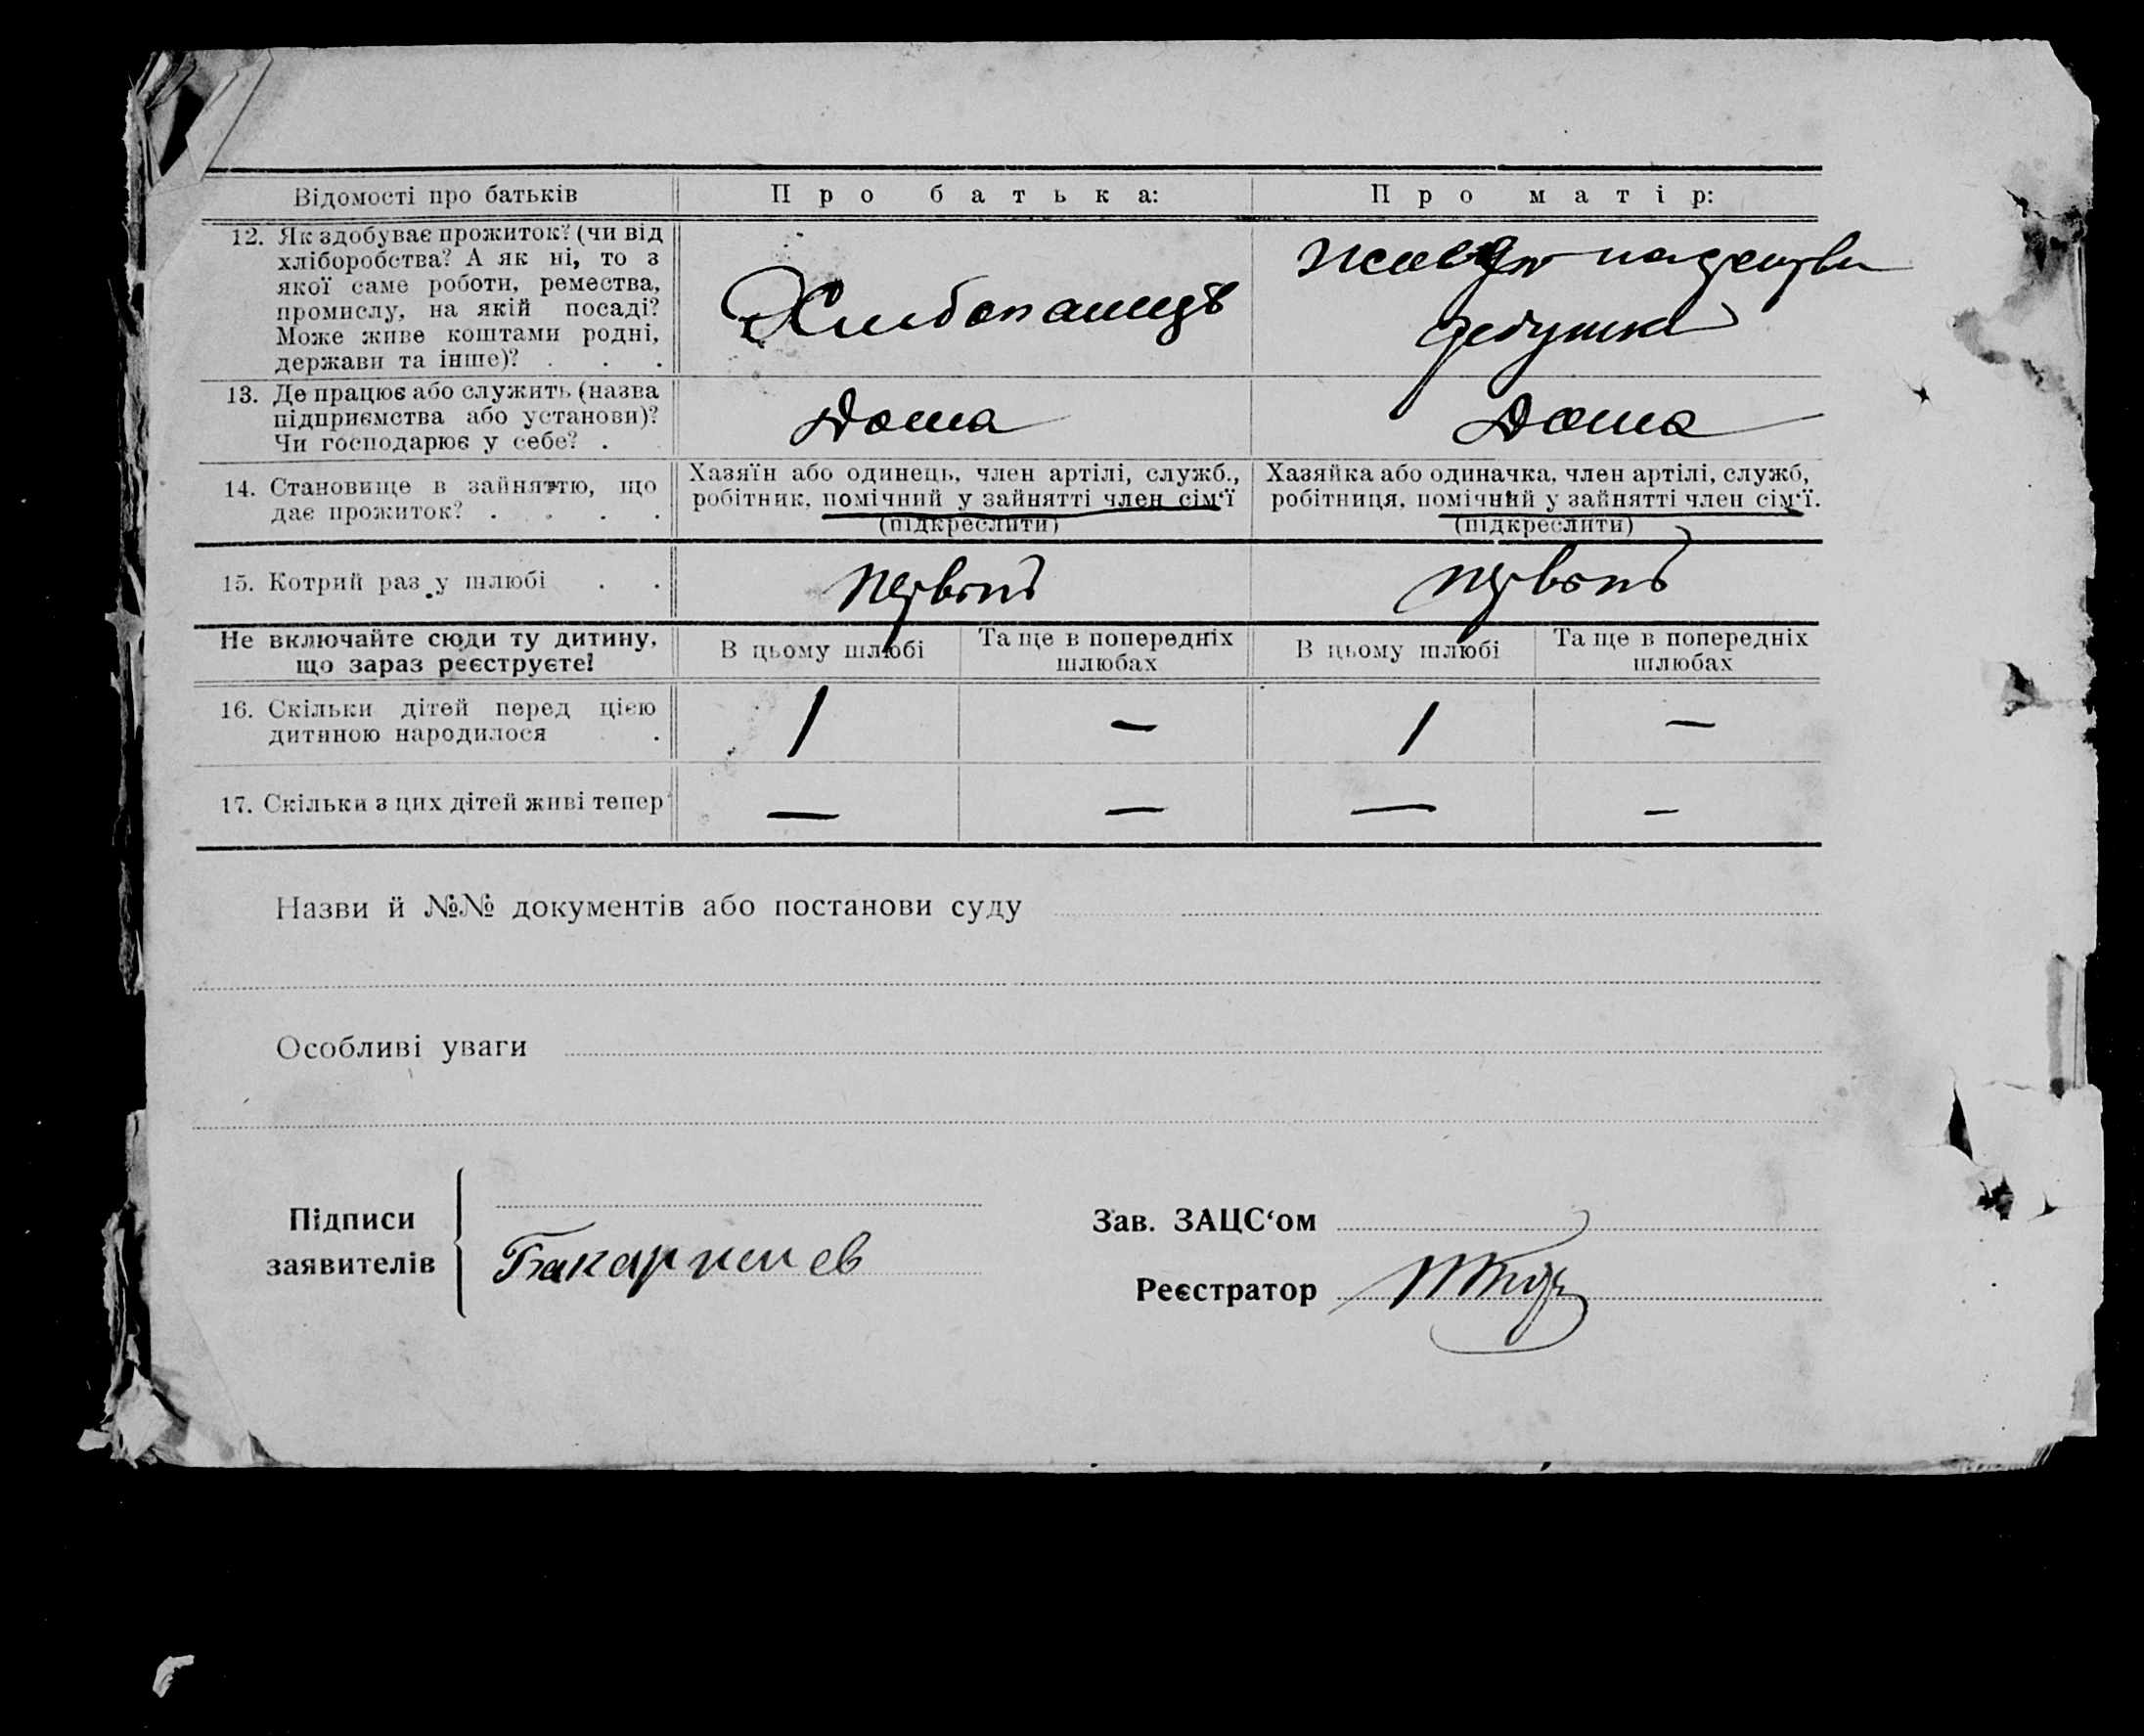 Відомості про батьків
Про батька:
Про матір:
12. Як здобуває прожиток? (чи від
хліборобства? А як ні, то з
якої саме роботи, ремества,
промислу, на якій посаді?
Може живе коштами родні,
держави та інше)? . . .
Хлибопашедъ
дедушка
13. Де працює або служить (назва
підприємства або установи)?
Чи господарює у себе? .
Дома
Дома
14. Становище в зайняттю, що
дає прожиток? . . . .
Хазяїн або одинець, член артілі, служб.,
робітник, помічний у зайнятті член сім'ї
(підкреслити)
Хазяйка або одиначка, член артілі, служб,
робітниця, помічний у зайнятті член сім'ї.
(підкреслити)
15. Котрий раз у шлюбі . .
Не включайте сюди ту дитину,
що зараз реєструєте!
В цьому шлюбі
Та ще в попередніх
шлюбах
В цьому шлюбі
Та ще в попередніх
шлюбах
16. Скільки дітей перед цією
дитиною народилося .
1 — 1 —
17. Скільки з цих дітей живі тепер
— — — —
Назви й №№ документів або постанови суду
Особливі уваги
Підписи
заявителів
Зав. ЗАЦС'ом
Реєстратор